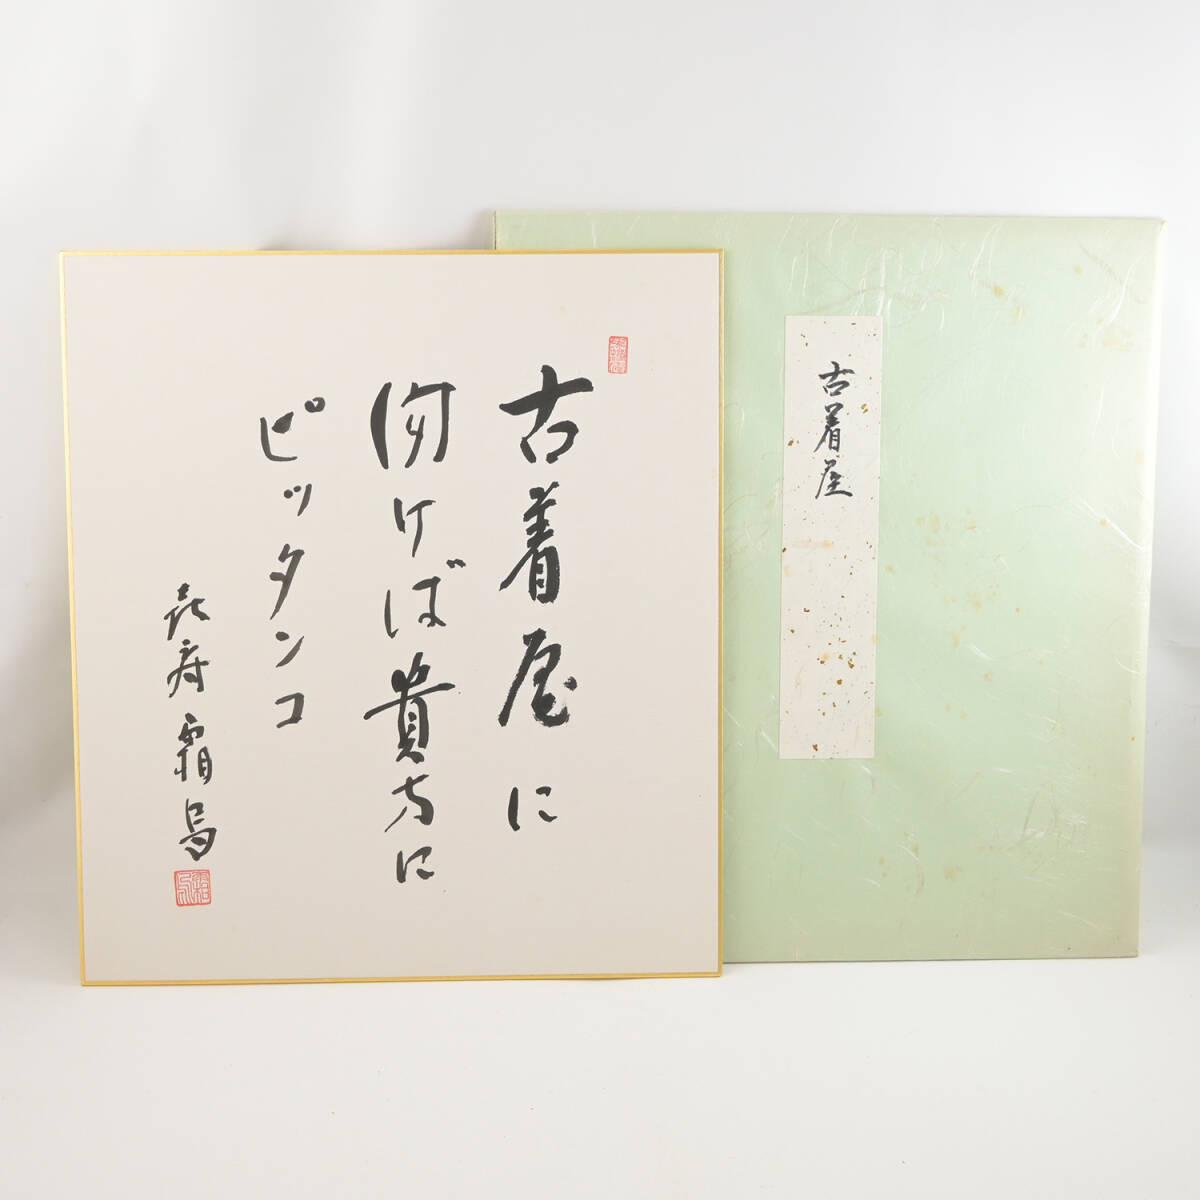 古着屋に
けば貴方に
ピッタンコ
喜寿 霜鳥
古着屋